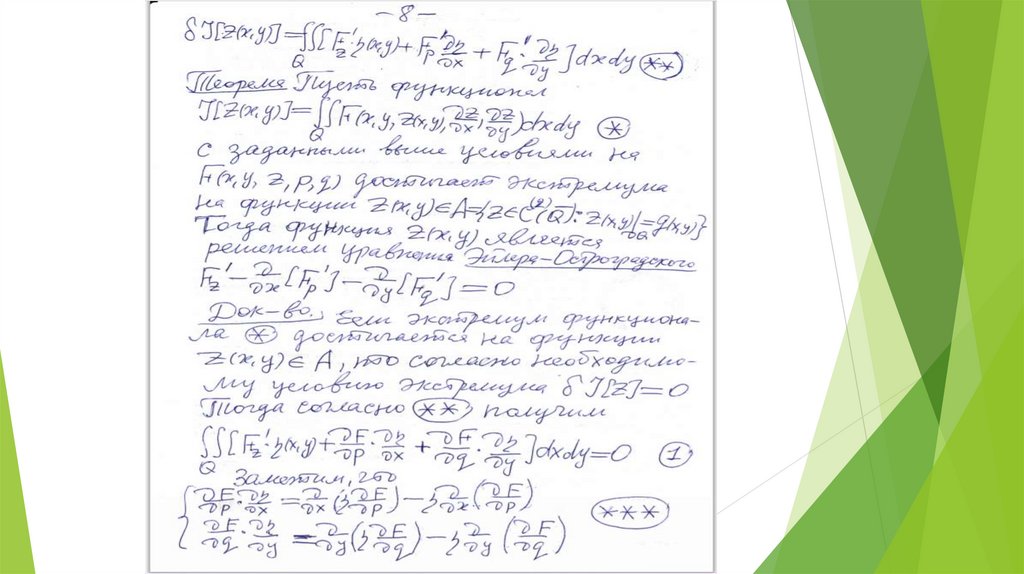 -8-
δJ[z(x,y)]=∬_Q[F'_z·η(x,y)+F'_p ∂η/∂x + F'_q·∂η/∂y]dxdy (**)
Теорема Пусть функционал
J[z(x,y)]=∬_Q F(x,y,z(x,y),∂z/∂x,∂z/∂y)dxdy (*)
с заданными выше условиями на
F(x,y,z,p,q) достигает экстремума
на функции z(x,y)∈A={z∈C^(2)(Q̄): z(x,y)|_∂Q=g(x,y)}
Тогда функция z(x,y) является
решением уравнения Эйлера-Остроградского
F'_z - ∂/∂x[F'_p] - ∂/∂y[F'_q]=0
Док-во. Если экстремум функциона-
ла (*) достигается на функции
z(x,y)∈A, то согласно необходимо-
му условию экстремума δJ[z]=0
Тогда согласно (**) получим
∬_Q[F'_z·η(x,y)+∂F/∂p·∂η/∂x + ∂F/∂q·∂η/∂y]dxdy=0 (1)
Заметим, что
{ ∂F/∂p·∂η/∂x = ∂/∂x(η ∂F/∂p) - η ∂/∂x(∂F/∂p)
∂F/∂q·∂η/∂y = ∂/∂y(η ∂F/∂q) - η ∂/∂y(∂F/∂q) (***)